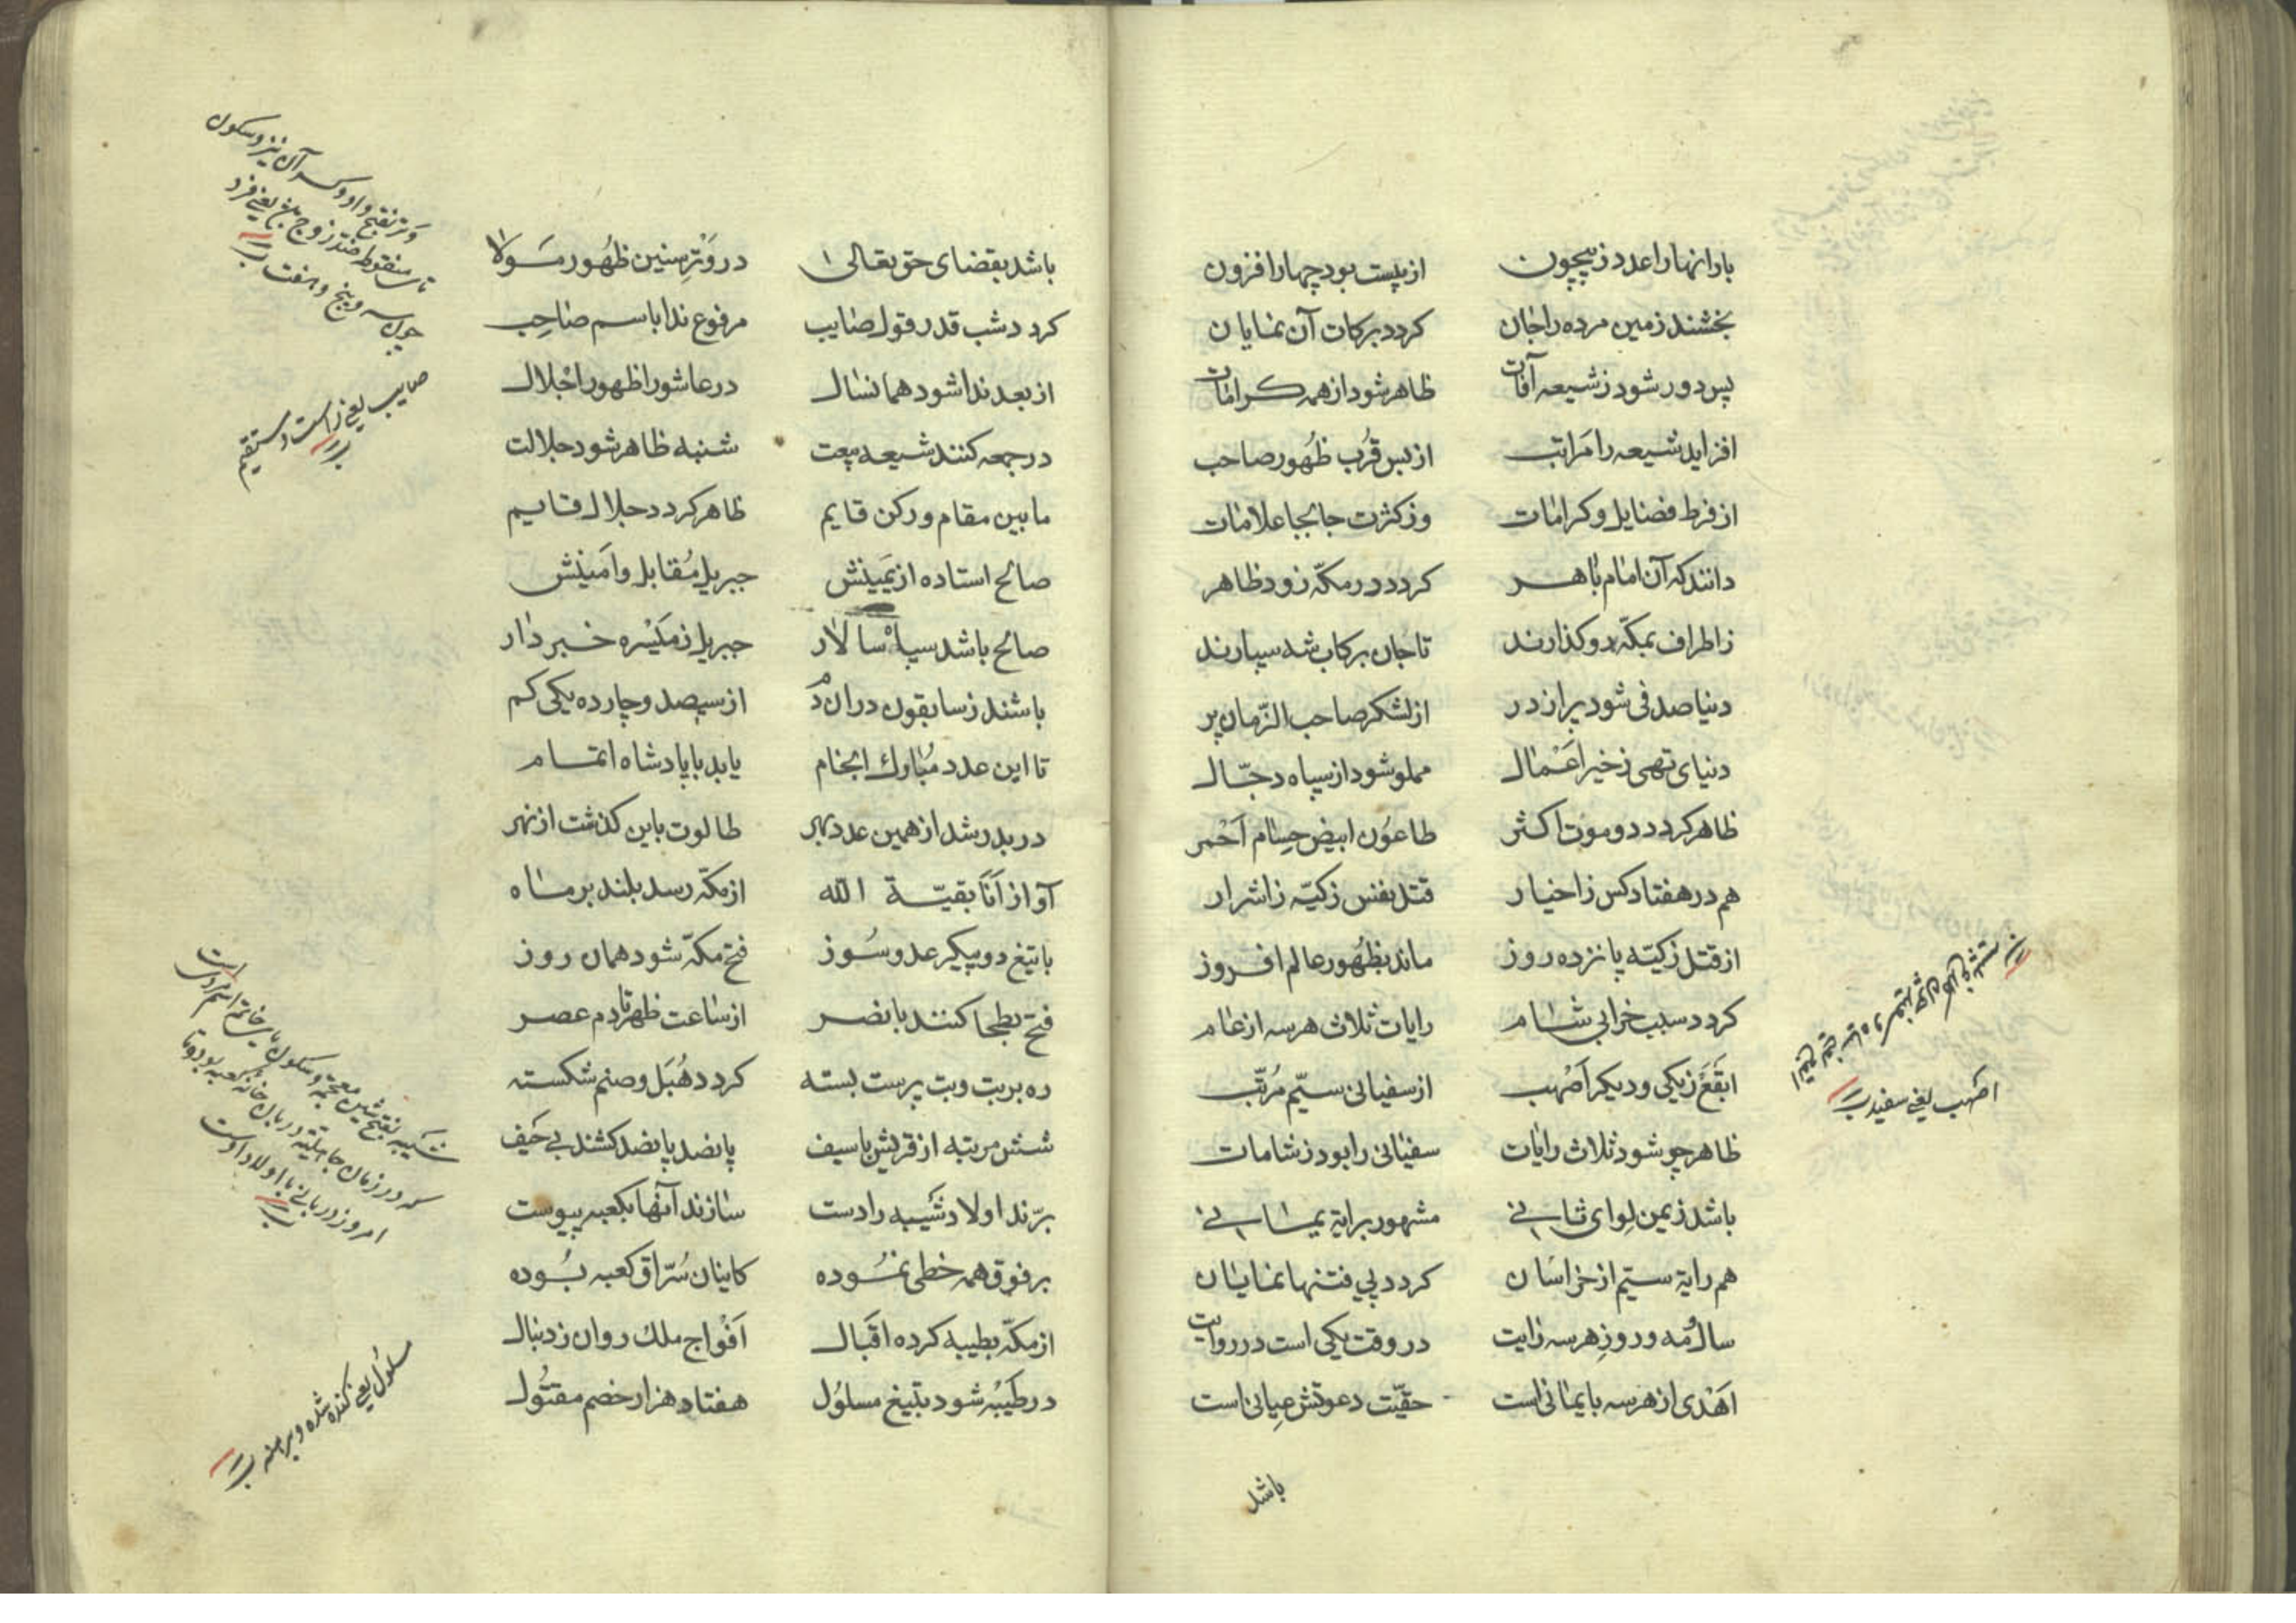 بارانها را عدد ز بیچون از بیست بود چهار افزون
بخشند زمین مرده را جان کردد برکات آن نمایان
پس دور شود ز شیعه آفات ظاهر شود از همه کرامات
افزاید شیعه را مراتب از بس قرب ظهور صاحب
از فرط فضایل و کرامات وز کثرت جابجا علامات
دانند که آن امام باهر کردد در مکه زود ظاهر
ز اطراف بمکه رو کذارند تا جان برکاب شه سپارند
دنیا صدفی شود پر از در از لشکر صاحب الزمان پر
دنیای تهی ز خیر اعمال مملو شود از سپاه دجال
ظاهر کردد دو موت اکثر طاعون ابیض حسام احمر
هم در هفتاد کس ز اخیار قتل نفس زکیه ز اشرار
از قتل زکیه پانزده روز ماند بظهور عالم افروز
کردد سبب خرابی شام رایات ثلاث هر سه از عام
ابقع ز یکی و دیکر اصهب از سفیانی سیم مرتب
ظاهر چو شود ثلاث رایات سفیانی را بود ز شامات
باشد ز یمن لوای ثانی مشهور برایة یمانی
هم رایة سیم از خراسان کردد پی فتنها نمایان
سال و مه و روز هر سه رایت در وقت یکی است در روایت
اهدی از هر سه با یمانی است حقیت دعوتش عیانی است
اصهب یعنی سفید
باشد
باشد بقضای حق تعالی در وتر سنین ظهور مولا
کردد شب قدر قول صایب مرفوع ندا باسم صاحب
از بعد ندا شود همانسال در عاشورا ظهور اجلال
در جمعه کنند شیعه بیعت شنبه ظاهر شود جلالت
ما بین مقام و رکن قایم ظاهر کردد جلال قایم
صالح استاده از یمینش جبریل مقابل و امینش
صالح باشد سپاه سالار جبریل ز میسره خبر دار
باشند ز سابقون دران دم از سیصد و چارده یکی کم
تا این عدد مبارك انجام یابد با پادشاه اتمام
در بدر شد از همین عدد بهر طالوت باین کذشت از نهر
آواز انا بقیة الله از مکه رسد بلند بر ماه
با تیغ دو پیکر عدو سوز فتح مکه شود همان روز
فتح بطحا کنند با نصر از ساعت ظهر تا دم عصر
ره بر بت و بت پرست بسته کردد هبل و صنم شکسته
شش مرتبه از قریش با سیف پانصد پانصد کشند بی حیف
برند اولاد شیبه را دست سازند آنها بکعبه پیوست
بر فوق همه خطی نموده کاینان سراق کعبه بوده
از مکه بطیبه کرده اقبال افواج ملك روان ز دنبال
در طیبه شود بتیغ مسلول هفتاد هزار خصم مقتول
وتر بفتح واو و کسر آن نیز و سکون
تاء منقوط ضد زوج یعنی فرد
چون سه و پنج و هفت
صایب یعنی راست و مستقیم
شیبه بفتح شین معجمه و سکون یا خاتم اسم مردی است
که در زمان جاهلیة دربان خانه کعبه بود و تا
امروز دربانی با اولاد اوست
مسلول یعنی کنده شده و برهنه